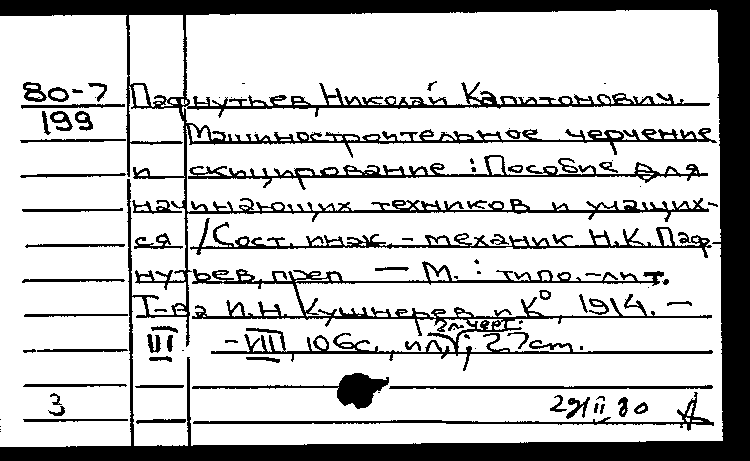 80-7 Пафнутьев, Николай Капитонович.
199 Машиностроительное черчение
и скицирование : Пособие для
начинающих техников и учащих-
ся / Сост. инж. - механик Н.К. Паф-
нутьев, преп — М. : типо.-лит.
Т-ва И.Н. Кушнерев и К°, 1914. —
2 л. черт.
III - VIII, 106 с., ил.; 27 см.
3 29 II 80